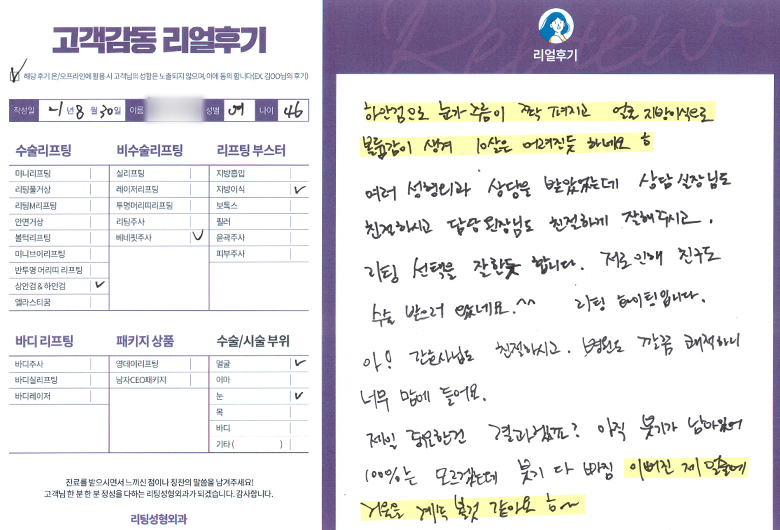 고객감동 리얼후기
해당 후기 온/오프라인에 활용 시 고객님의 성함은 노출되지 않으며, 이에 동의 합니다(EX. 김OO님의 후기)
작성일 21년 8월 30일 이름 성별 여 나이 46
수술리프팅
미니리프팅
리팅풀거상
리팅M리프팅
안면거상
볼턱리프팅
미니브이리프팅
반투명 머리띠 리프팅
상안검 & 하안검
엘라스티꿈
비수술리프팅
실리프팅
레이저리프팅
투명머리띠리프팅
리팅주사
베네핏주사
리프팅 부스터
지방흡입
지방이식
보톡스
필러
윤곽주사
피부주사
바디 리프팅
바디주사
바디실리프팅
바디레이저
패키지 상품
영데이리프팅
남자CEO패키지
수술/시술 부위
얼굴
이마
눈
목
바디
기타 ( )
진료를 받으시면서 느끼신 점이나 칭찬의 말씀을 남겨주세요!
고객님 한 분 한 분 정성을 다하는 리팅성형외과가 되겠습니다. 감사합니다.
리팅성형외과
Review
리얼후기
하안검으로 눈가 주름이 쫙 펴지고 얼굴 지방이식으로
볼륨감이 생겨 10살은 어려진듯 하네요 ㅎ
여러 성형외과 상담을 받았었는데 상담실장님도
친절하시고 담당원장님도 친절하게 잘해주시고.
리팅 선택을 잘한듯 합니다. 저로인해 친구도
수술 받으러 왔네요.^^ 리팅 화이팅입니다.
아! 간호사님도 친절하시고. 병원도 깔끔 쾌적하니
너무 맘에 들어요.
제일 중요한건 결과겠죠? 아직 붓기가 남아있어
100%는 모르겠는데 붓기 다 빠짐 이뻐진 제 얼굴에
거울을 계속 볼것 같아요 ㅎ~